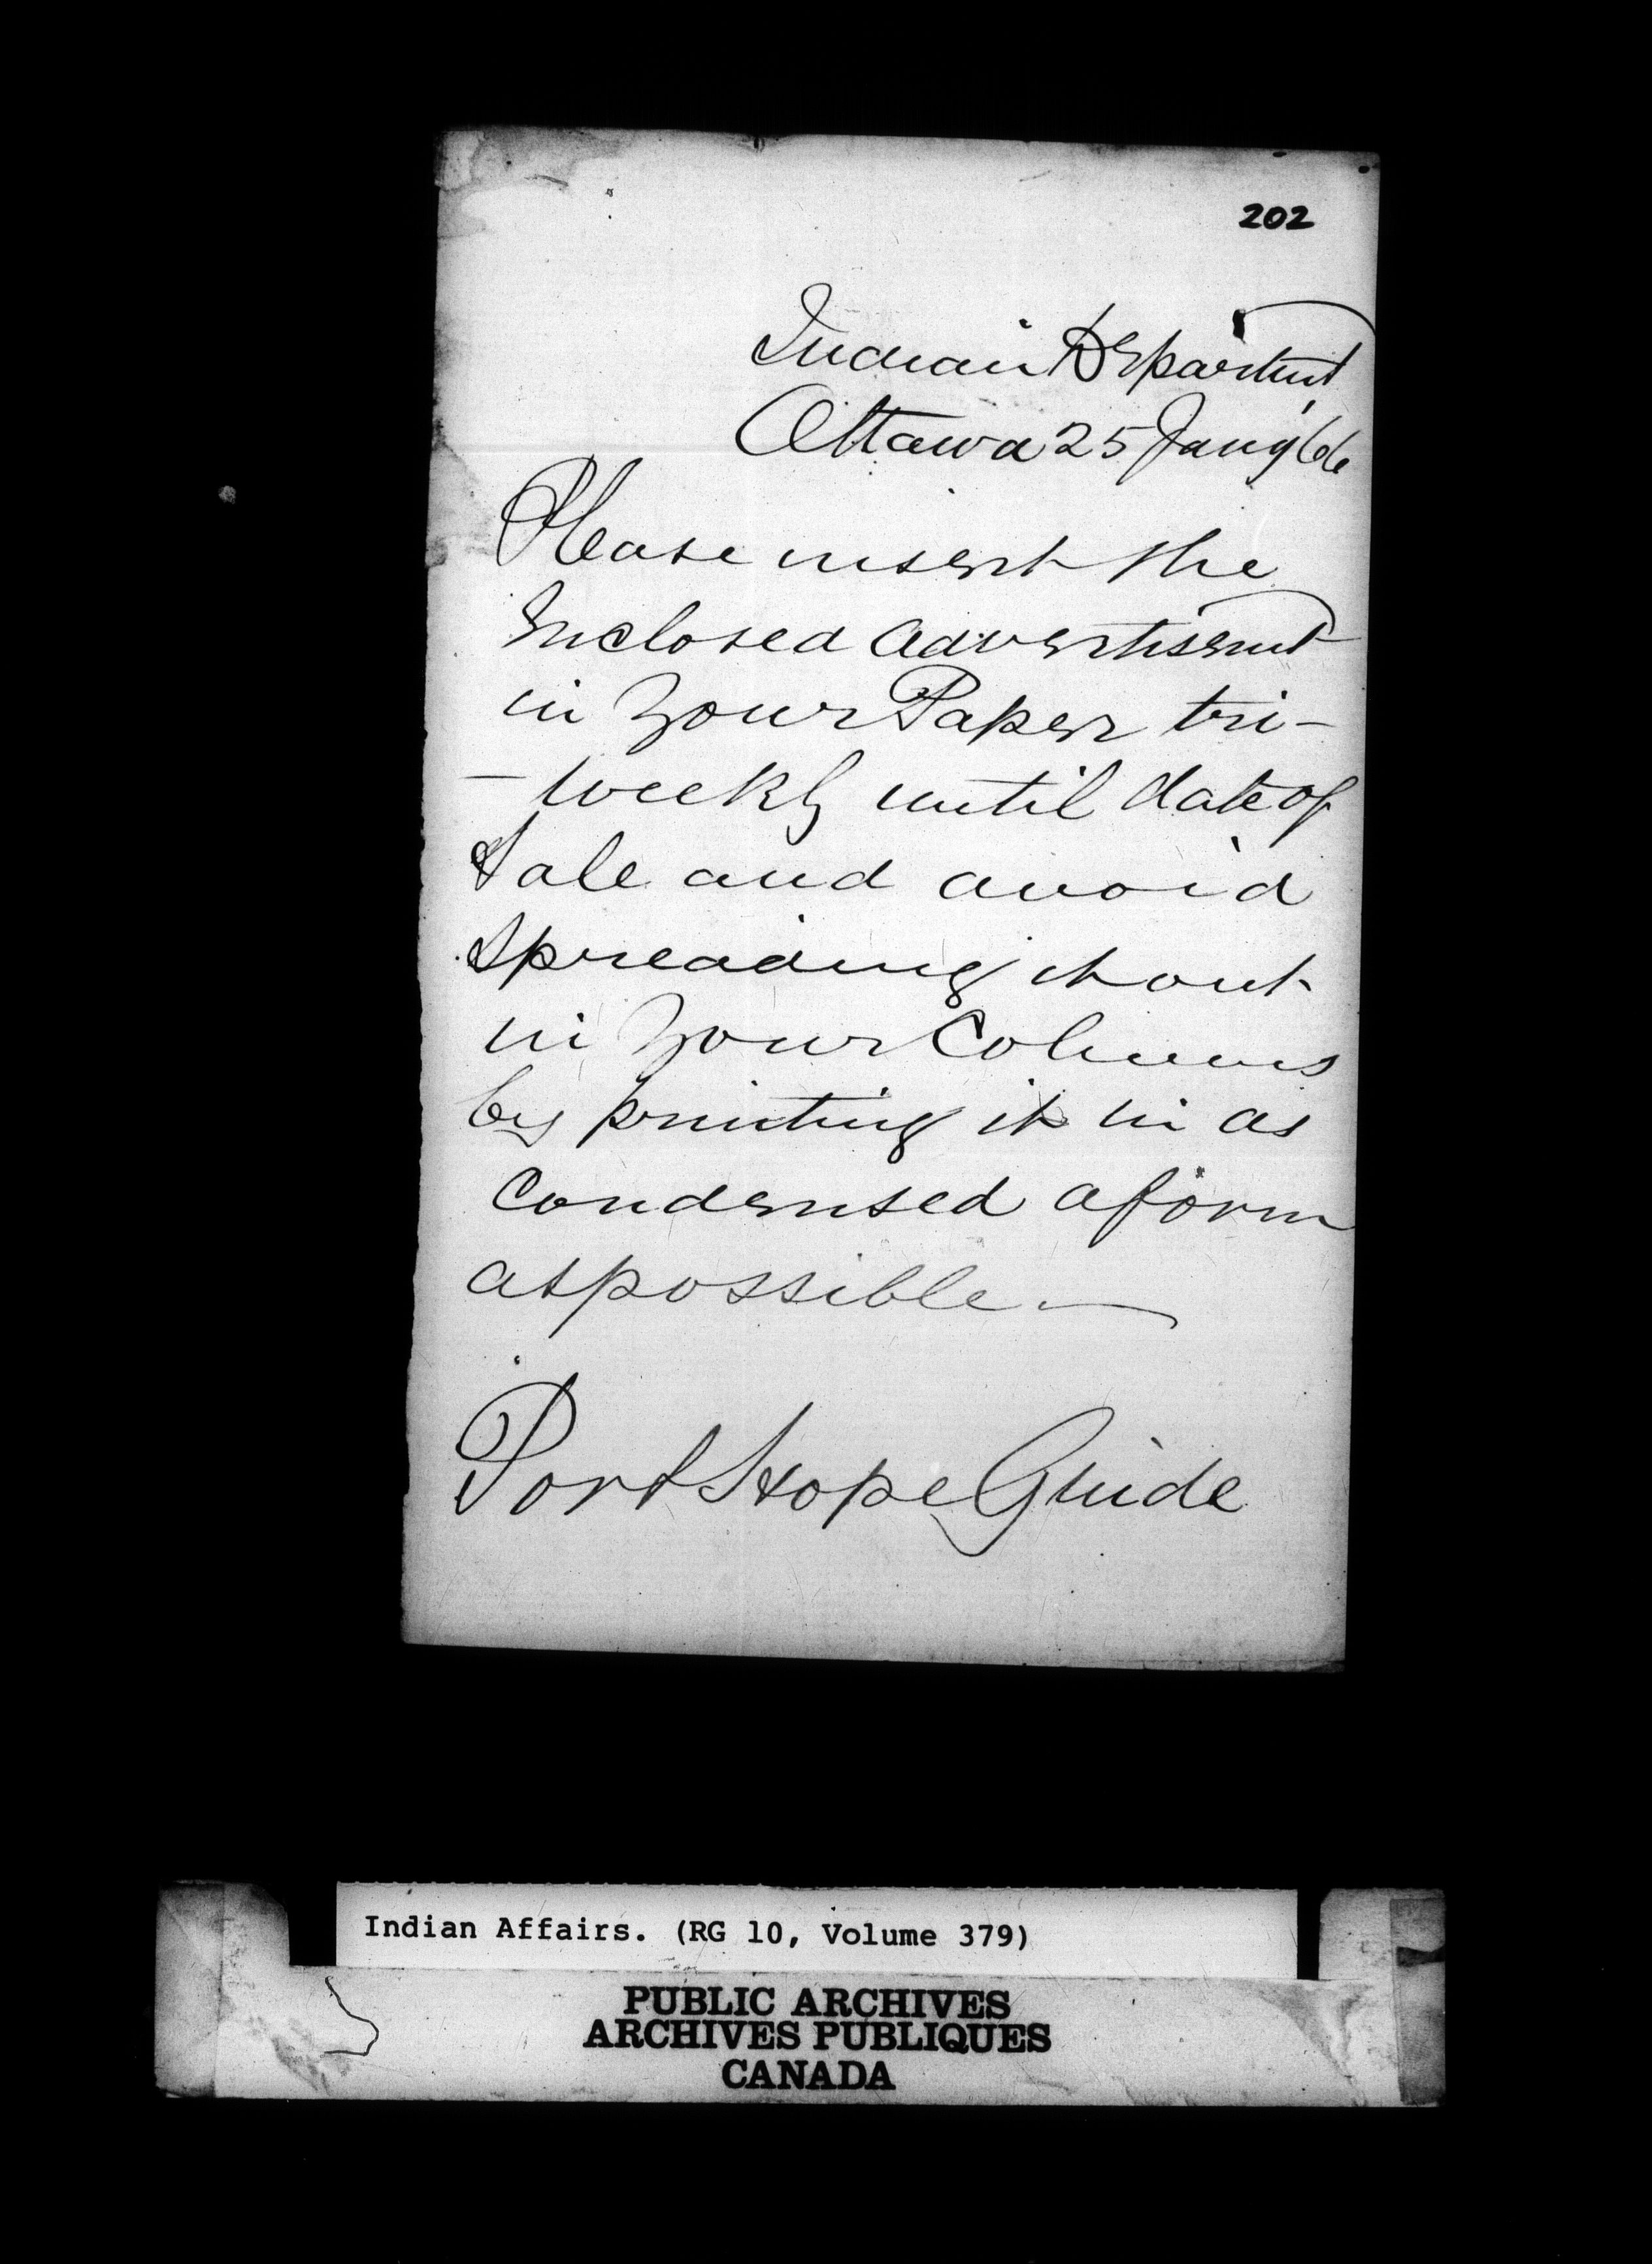 202
Indian Departmt
Ottawa 25 Jany '66
Please insert the
Inclosed advertisemt
in your Paper tri-
- weekly until date of
Sale and avoid
spreading it out
in your Columns
by printing it in as
condensed a form
as possible -
Port Hope Guide
Indian Affairs. (RG 10, Volume 379)
PUBLIC ARCHIVES
ARCHIVES PUBLIQUES
CANADA